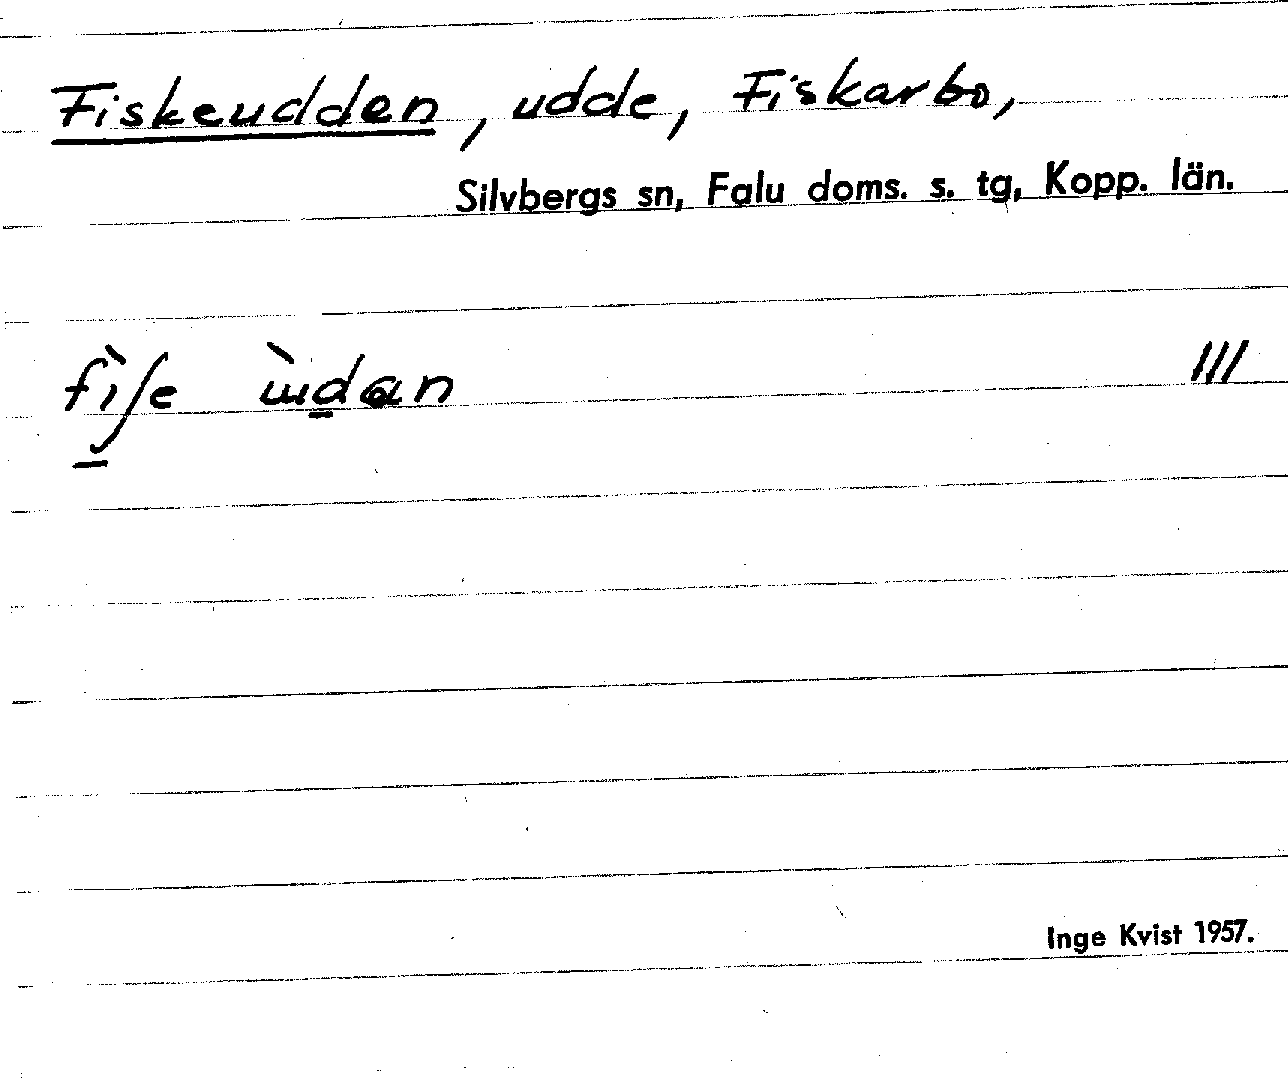 Fiskeudden, udde, Fiskarbo,
Silvbergs sn, Falu doms. s. tg, Kopp. län.
fìʃe ɯ̀dan ///
Inge Kvist 1957.